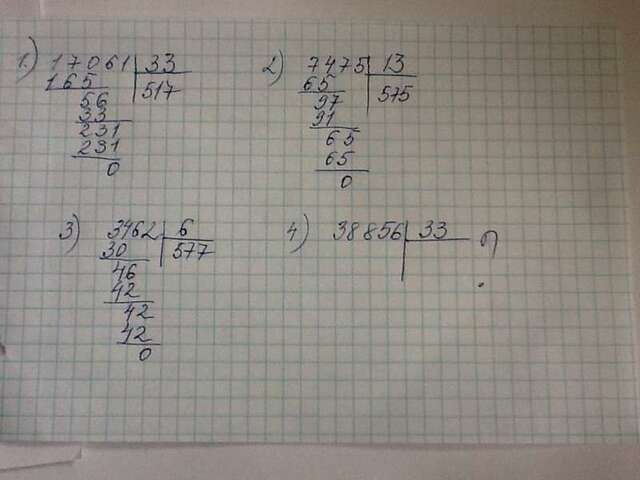 1) 17061 | 33
165 | 517
56
33
231
231
0
2) 7475 | 13
65 | 575
97
91
65
65
0
3) 3462 | 6
30 | 577
46
42
42
42
0
4) 38856 | 33 ?